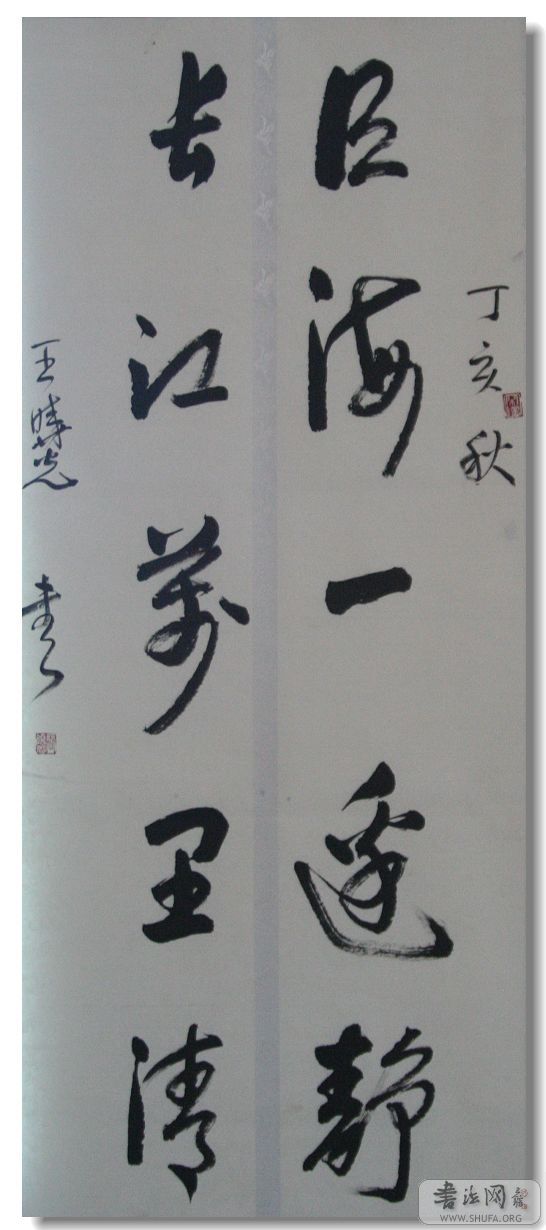 丁亥秋
巨海一邊靜
長江萬里清
王曉光 書
書法网
WWW.SHUFA.ORG